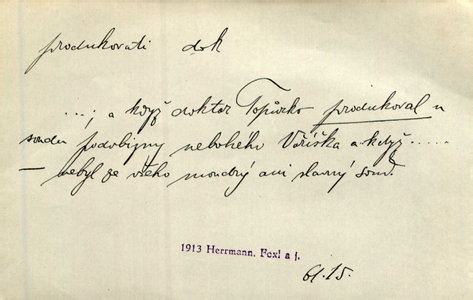 produkovati dok
...; a když doktor Topůrko produkoval u
soudu podobizny nebohého Voříška a když .....
— nebyl ze všeho moudrý ani slavný soud.
1913 Herrmann, Foxl a j.
61.15.